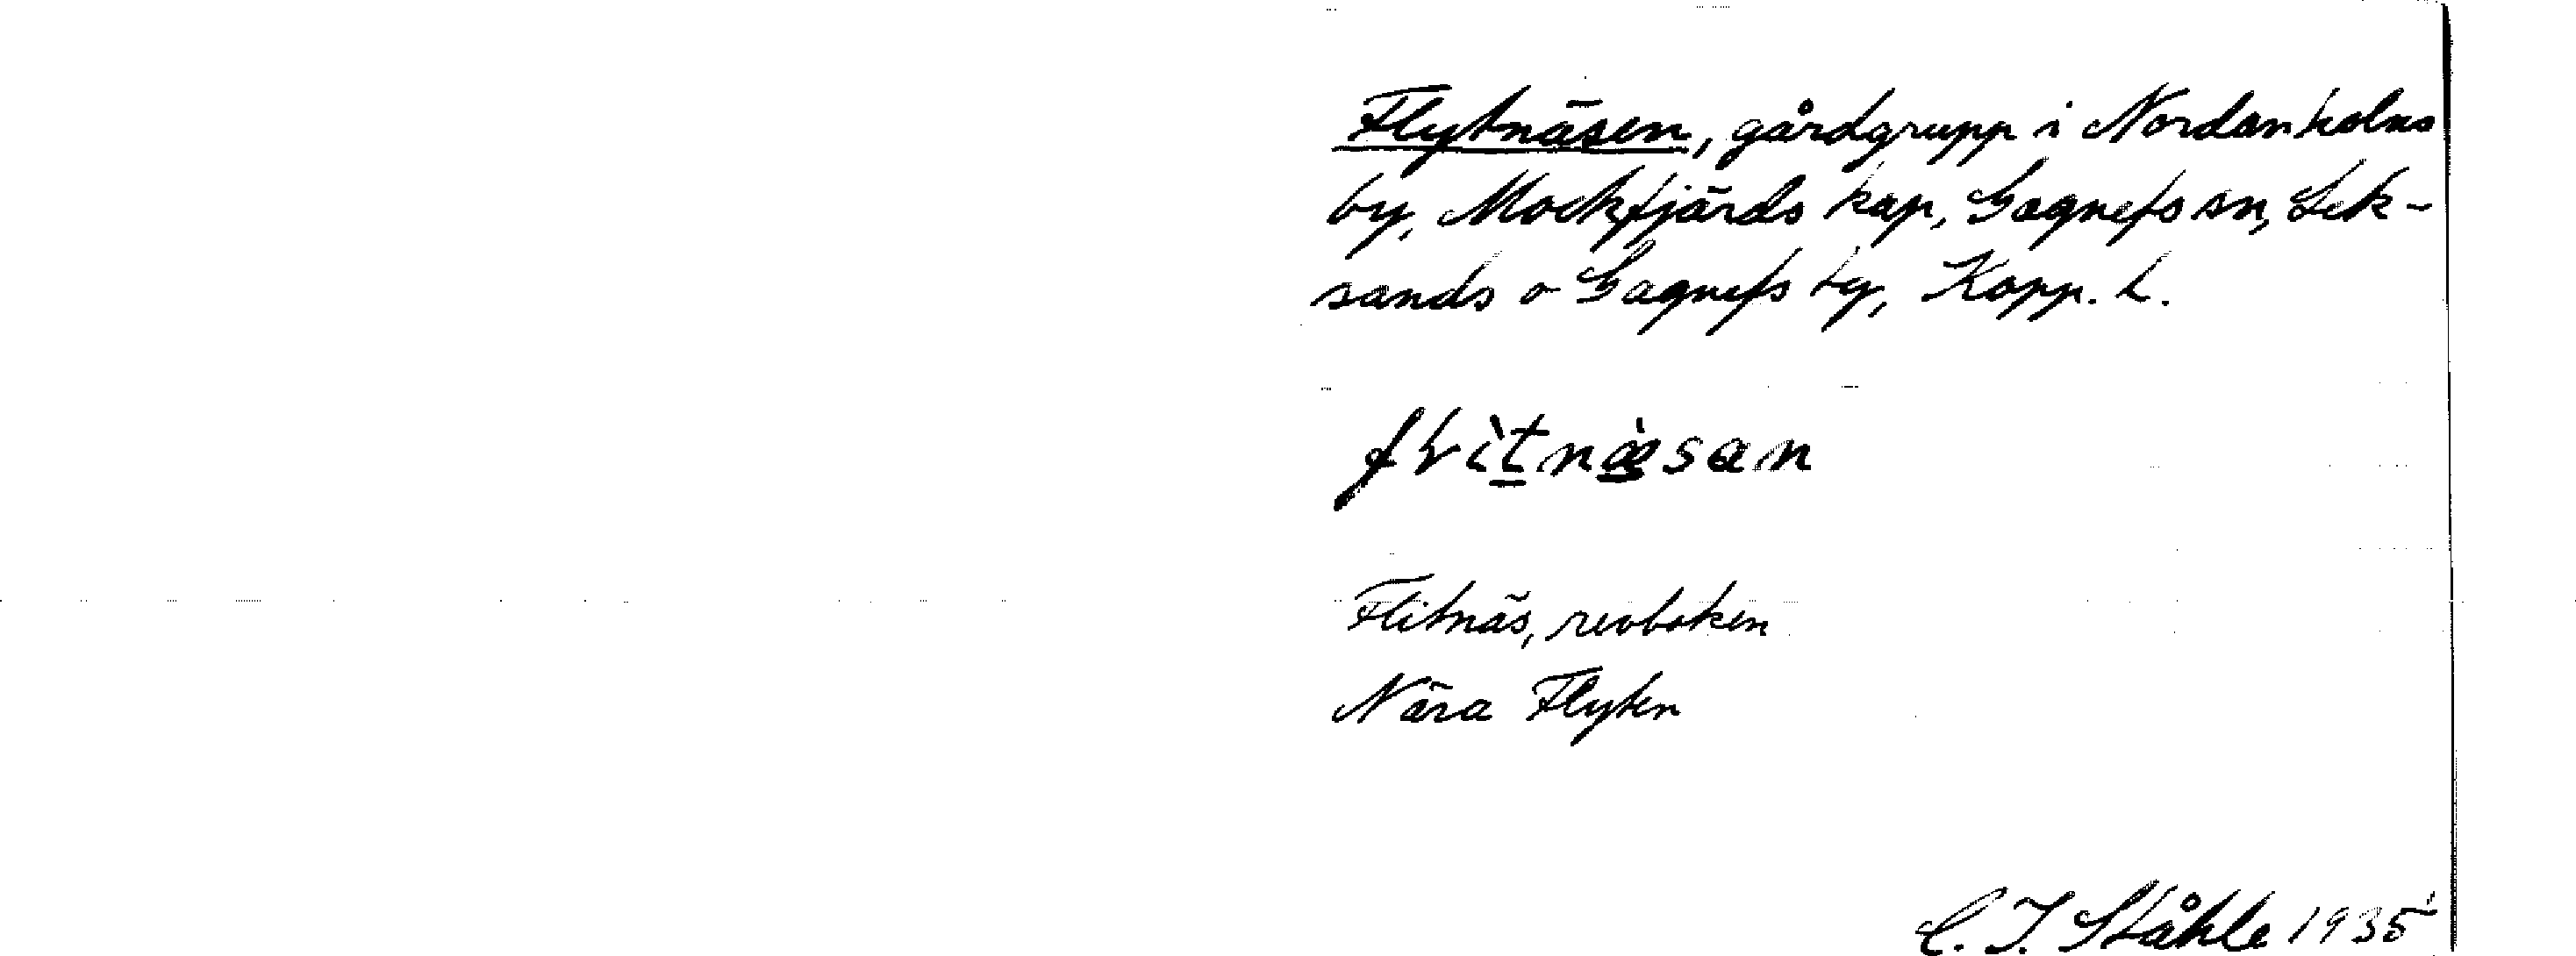 Flytnäsen, gårdgrupp i Nordanholns
by, Mockfjärds kap, Gagnefs sn, Lek-
sands o Gagnefs tg, Kopp. L.
fƚìtnæ̀san
Flitnäs, revboken
Nära Flyten
C. I. Ståhle 1935